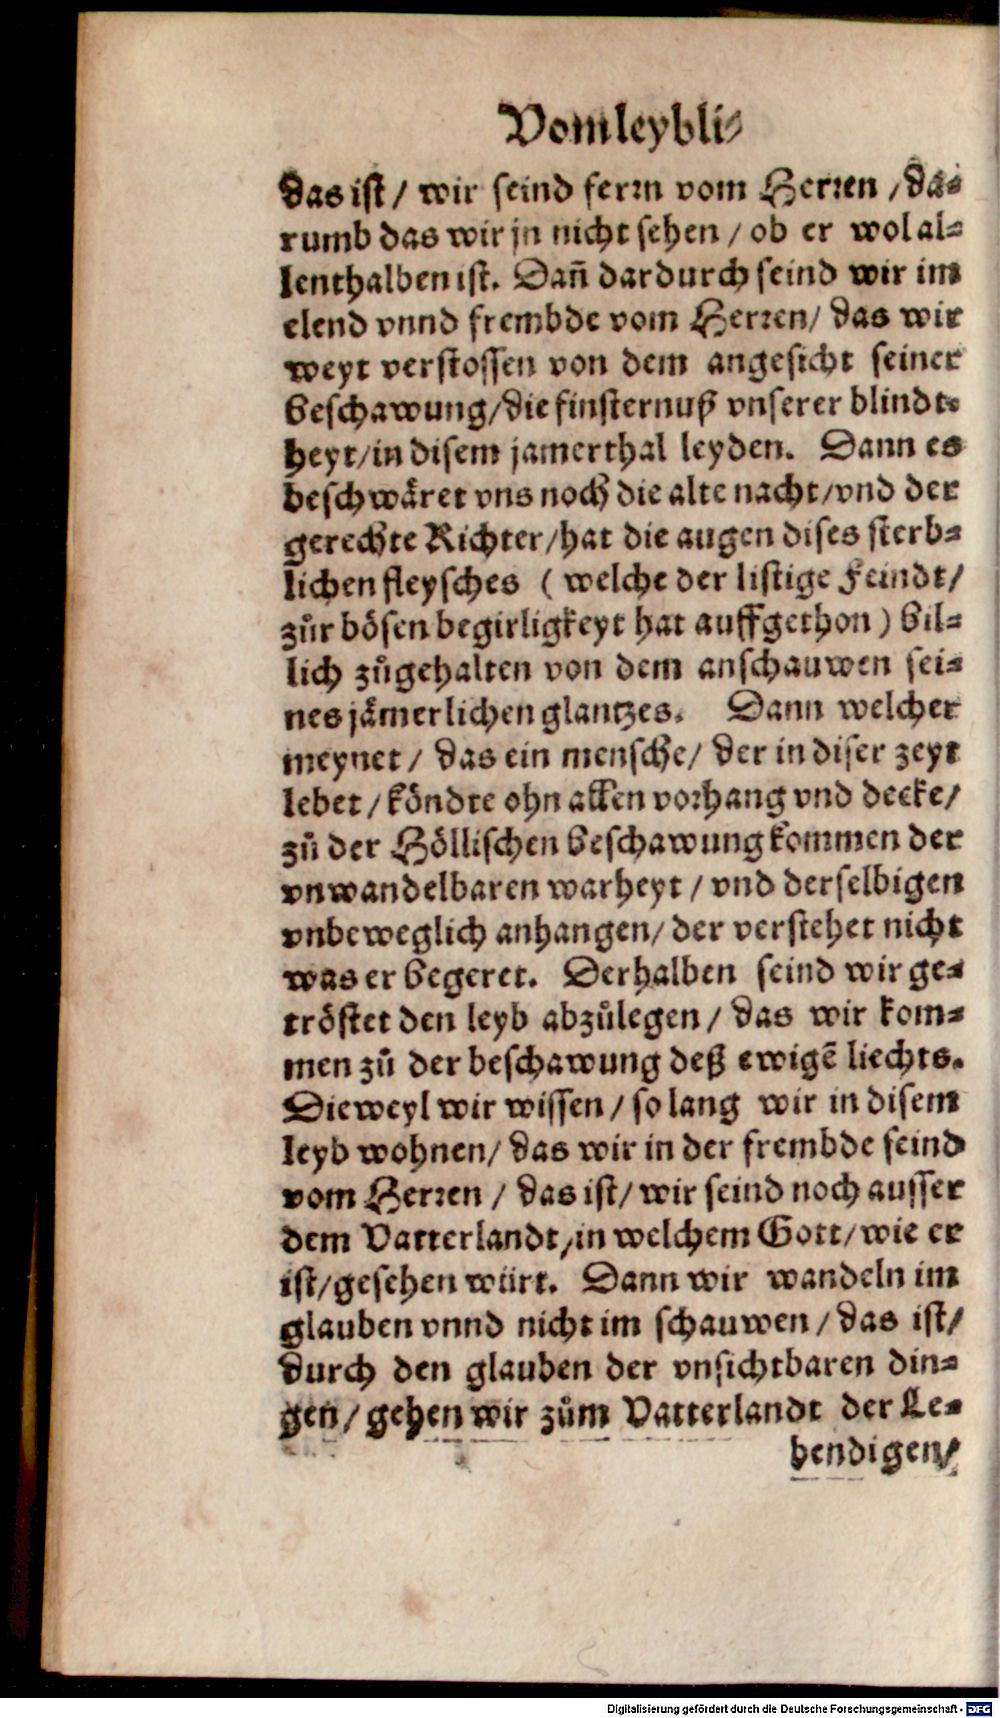 Vom leybli⸗
das ist / wir seind ferrn vom Herren / da⸗
rumb das wir jn nicht sehen / ob er wol al⸗
lenthalben ist. Dañ dardurch seind wir im
elend vnnd frembde vom Herren / das wir
weyt verstossen von dem angesicht seiner
beschawung / die finsternuß vnserer blindt⸗
heyt / in disem jamerthal leyden. Dann es
beschwäret vns noch die alte nacht / vnd der
gerechte Richter / hat die augen dises sterb⸗
lichen fleysches ( welche der listige Feindt /
zůr bösen begirligkeyt hat auffgethon ) bil⸗
lich zůgehalten von dem anschauwen sei⸗
nes jämerlichen glantzes. Dann welcher
meynet / das ein mensche / der in diser zeyt
lebet / köndte ohn allen vorhang vnd decke /
zů der Höllischen beschawung kommen der
vnwandelbaren warheyt / vnd derselbigen
vnbeweglich anhangen / der verstehet nicht
was er begeret. Derhalben seind wir ge⸗
tröstet den leyb abzůlegen / das wir kom⸗
men zů der beschawung deß ewigē liechts.
Dieweyl wir wissen / so lang wir in disem
leyb wohnen / das wir in der frembde seind
vom Herren / das ist / wir seind noch ausser
dem Vatterlandt / in welchem Gott / wie er
ist / gesehen würt. Dann wir wandeln im
glauben vnnd nicht im schauwen / das ist /
durch den glauben der vnsichtbaren din⸗
gen / gehen wir zům Vatterlandt der Le⸗
bendigen /
Digitalisierung gefördert durch die Deutsche Forschungsgemeinschaft - DFG